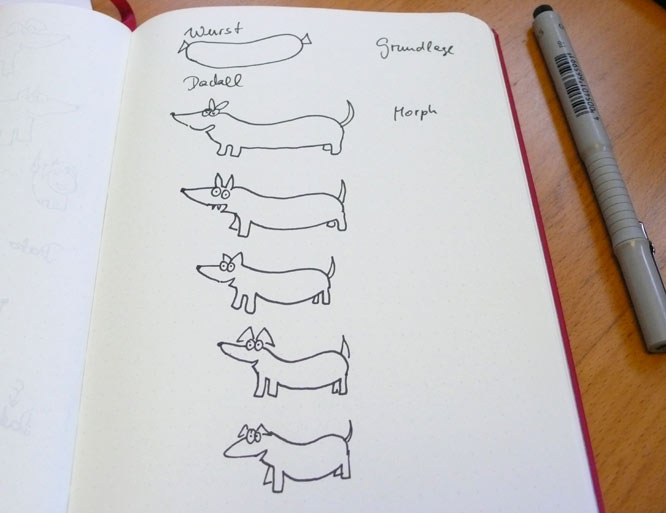 Wurst
Grundlage
Dadall
Morph